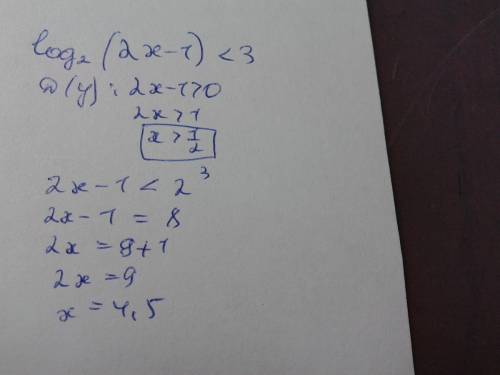 log₂ (2x-1) < 3
D(y): 2x-1>0
2x>1
x > 1/2
2x-1 < 2³
2x-1 = 8
2x = 8+1
2x = 9
x = 4,5